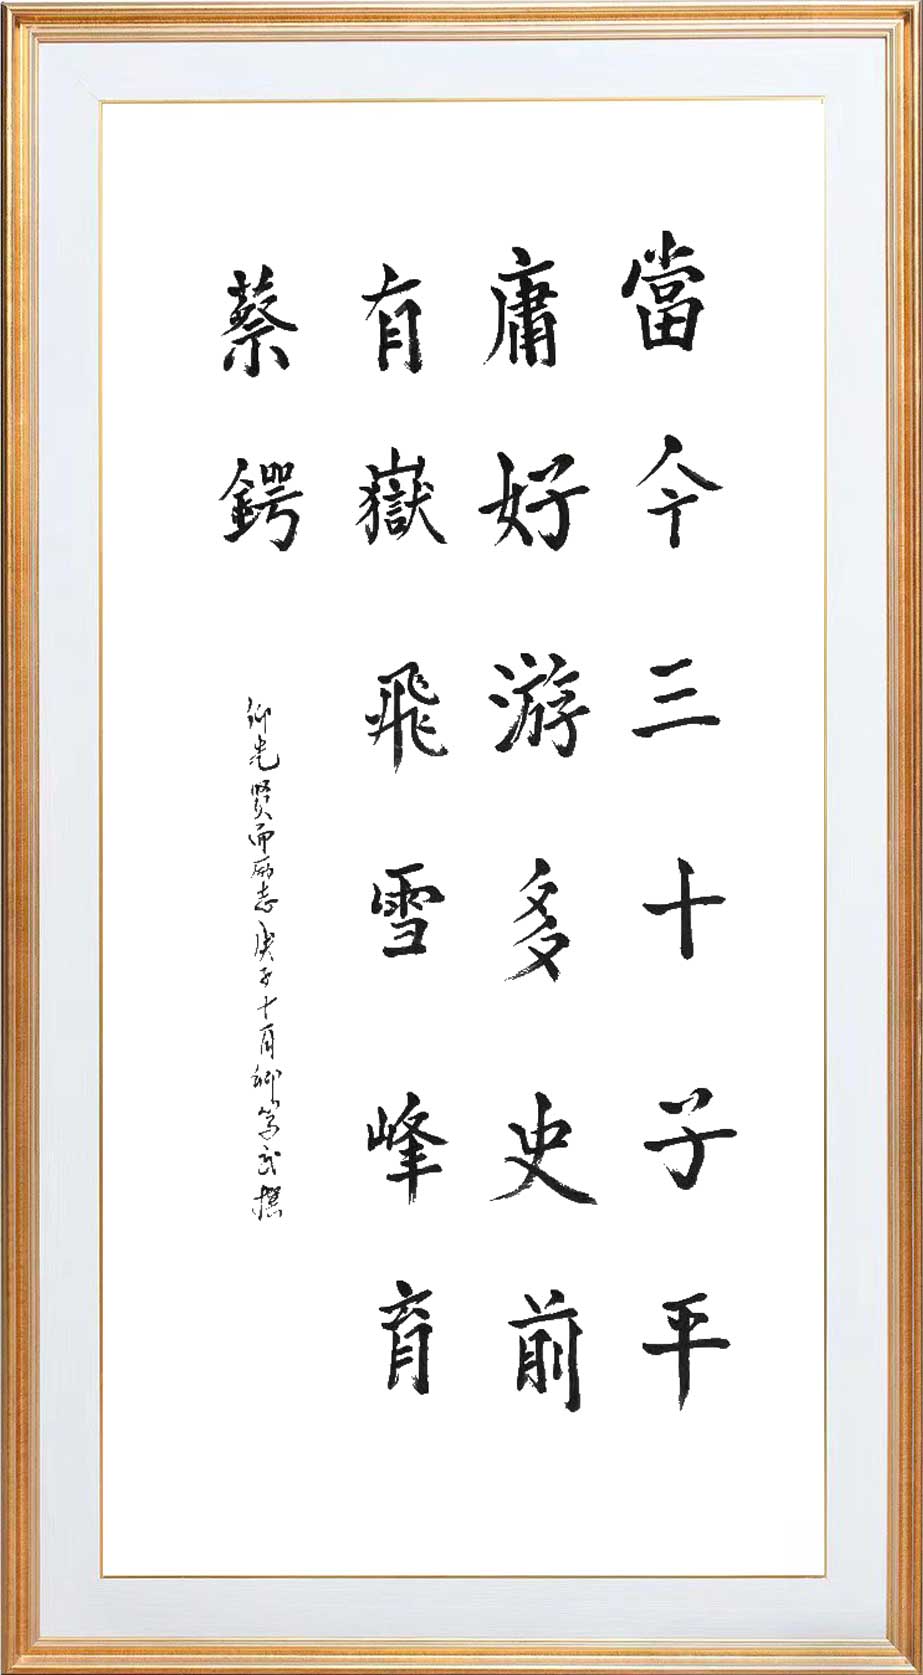 當今三十子平
庸好游多史前
有嶽飛雪峰育
蔡鍔
仰先賢而励志庚子十月柳學武撰